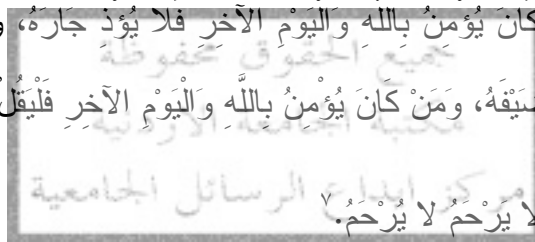 كَانَ يُؤْمِنُ بِاللَّهِ وَالْيَوْمِ الآخِرِ فَلا يُؤْذِ جَارَهُ، و
جميع الحقوق محفوظة
ضَيْفَهُ، وَمَنْ كَانَ يُؤْمِنُ بِاللَّهِ وَالْيَوْمِ الآخِرِ فَلْيَقُلْ
مكتبة الجامعة الاردنية
مركز ايداع الرسائل الجامعية
لا يَرْحَمُ لا يُرْحَمُ.٧